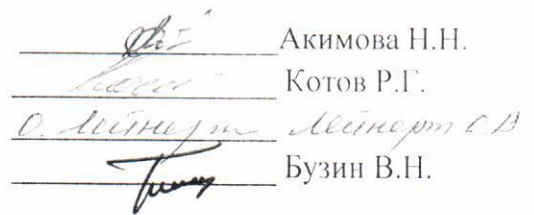 Акимова Н.Н.
Котов Р.Г.
О. Мейнерт Мейнерт О.В
Бузин В.Н.